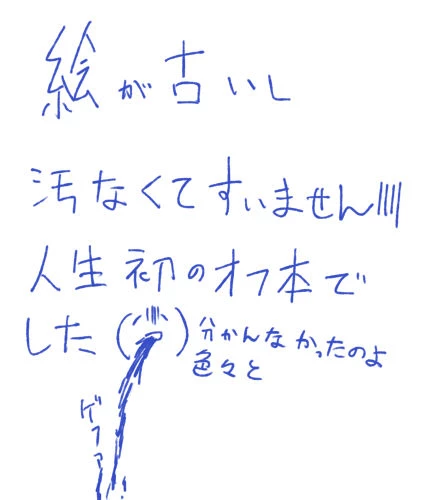 絵が古いし
汚なくてすいません||||
人生初のオフ本で
した
分かんなかったのよ
色々と
ゲファ!